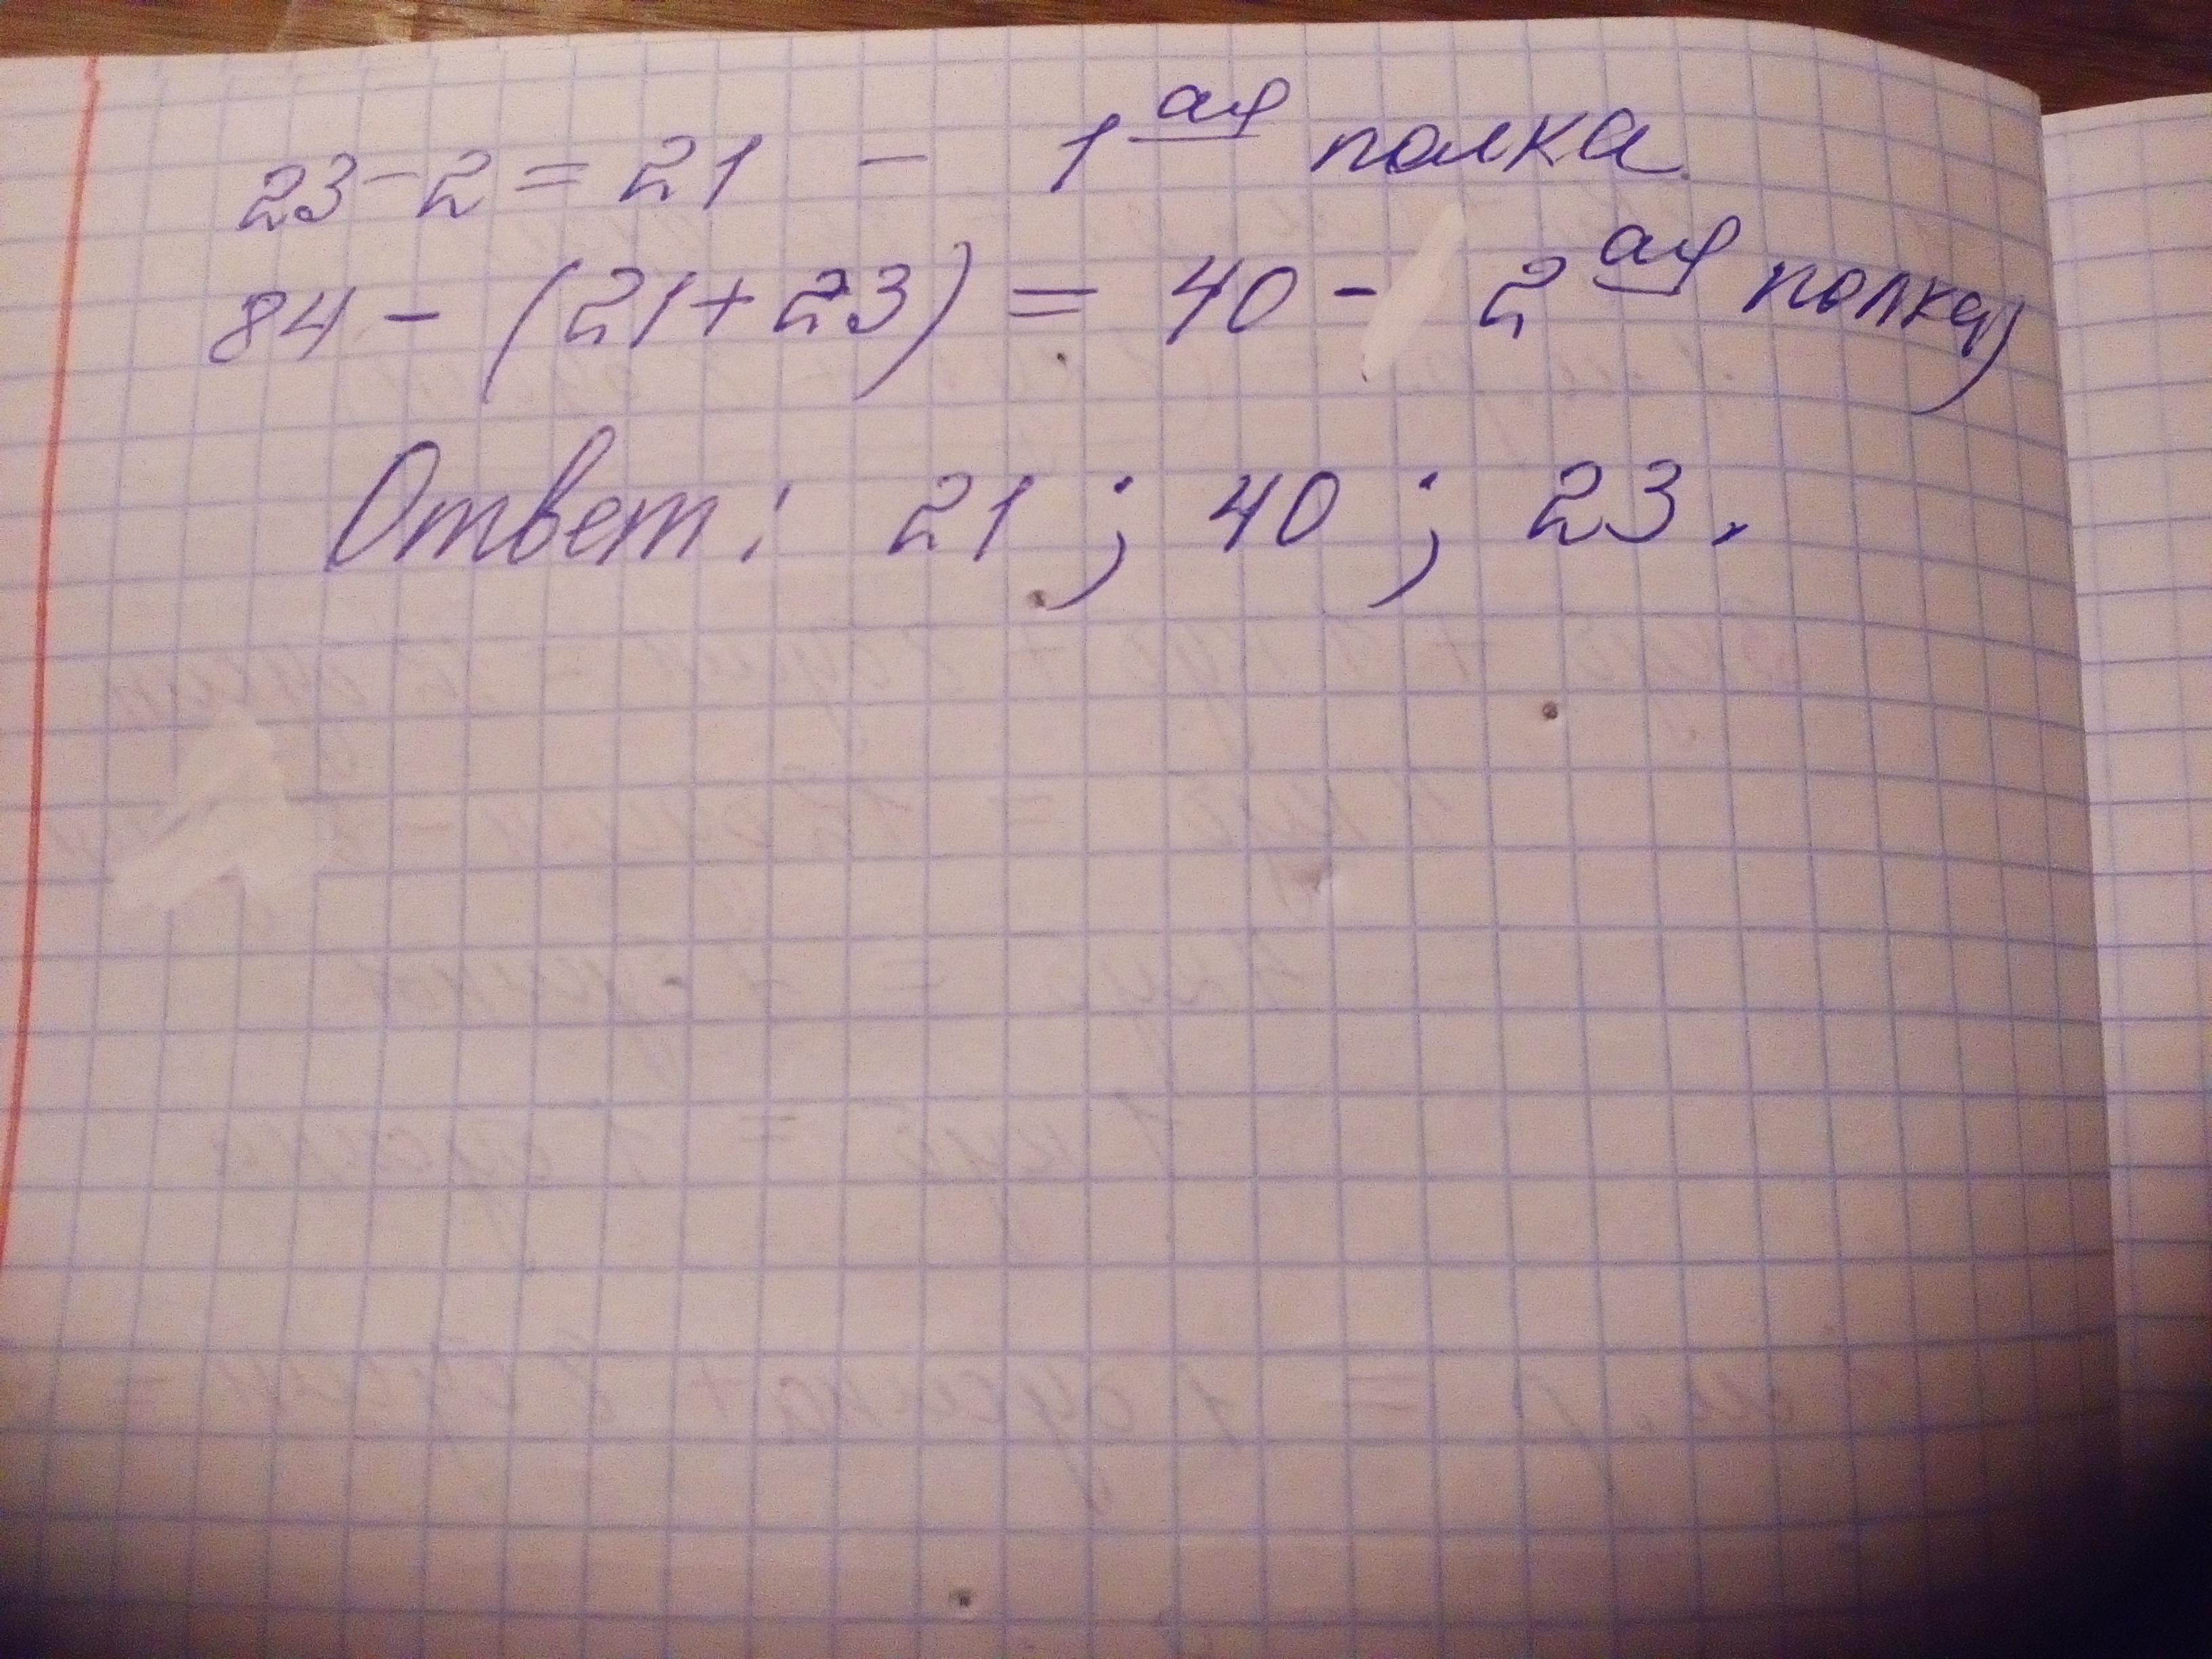 23-2=21 - 1ая полка
84-(21+23)=40- 2ая полка)
Ответ: 21; 40; 23.